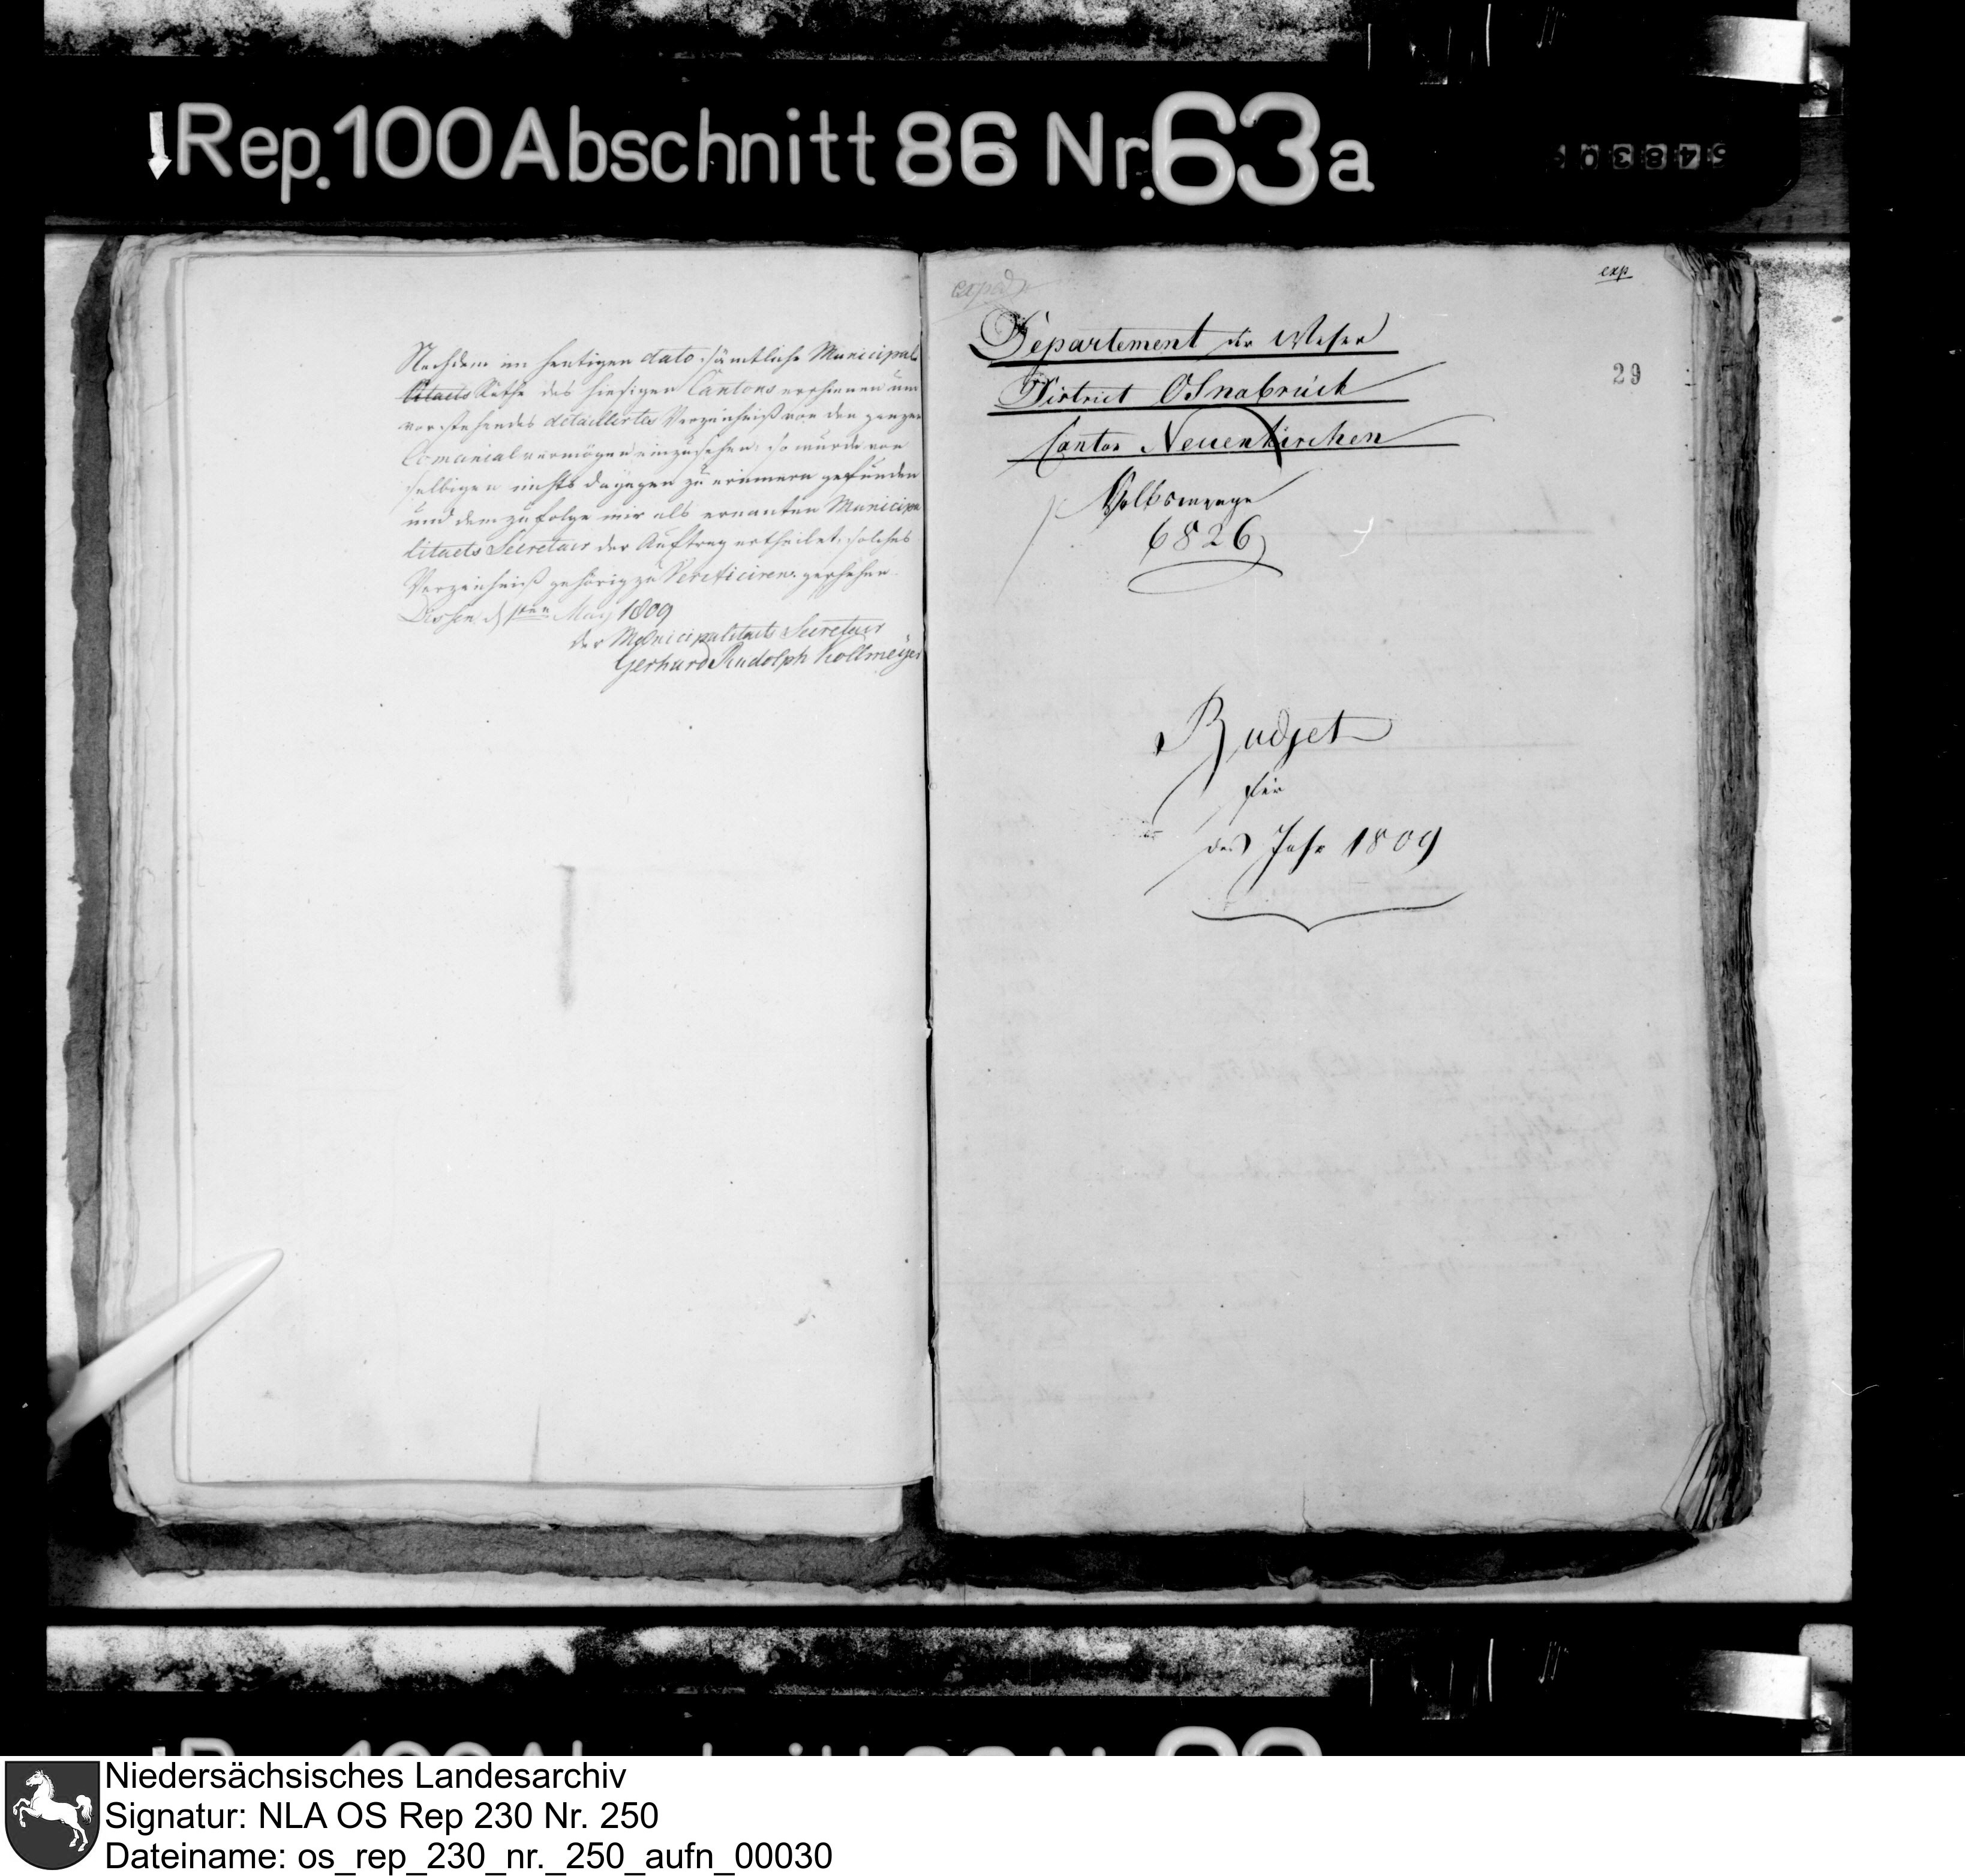 Rep. 100 Abschnitt 86 Nr. 63a
Nachdem im heutigen dato sämtliche Municipal
litaets Räthe des hiesigen Cantons erschienen um
vorstehendes detaillertes Verzeichniß von den ganzen
Comunial vermögen einzusehen, so wurde von
selbigen nichts dagegen zu erinnern gefunden
und dem zu folge mir als ernanten Municipa
litaets Secretair der Auftrag ertheilet, solches
Verzeichniß gehörig zu Verificiren. geschehen
Dissen, d 1sten May 1809
der Municipalitaets Secretair
Gerhard Rudolph Kollmeyer
exped
exp
29
Departement der Weser
District Osnabrück
Canton Neuenkirchen
Volksmenge
6826
Budget
für
das Jahr 1809
Niedersächsisches Landesarchiv
Signatur: NLA OS Rep 230 Nr. 250
Dateiname: os_rep_230_nr._250_aufn_00030